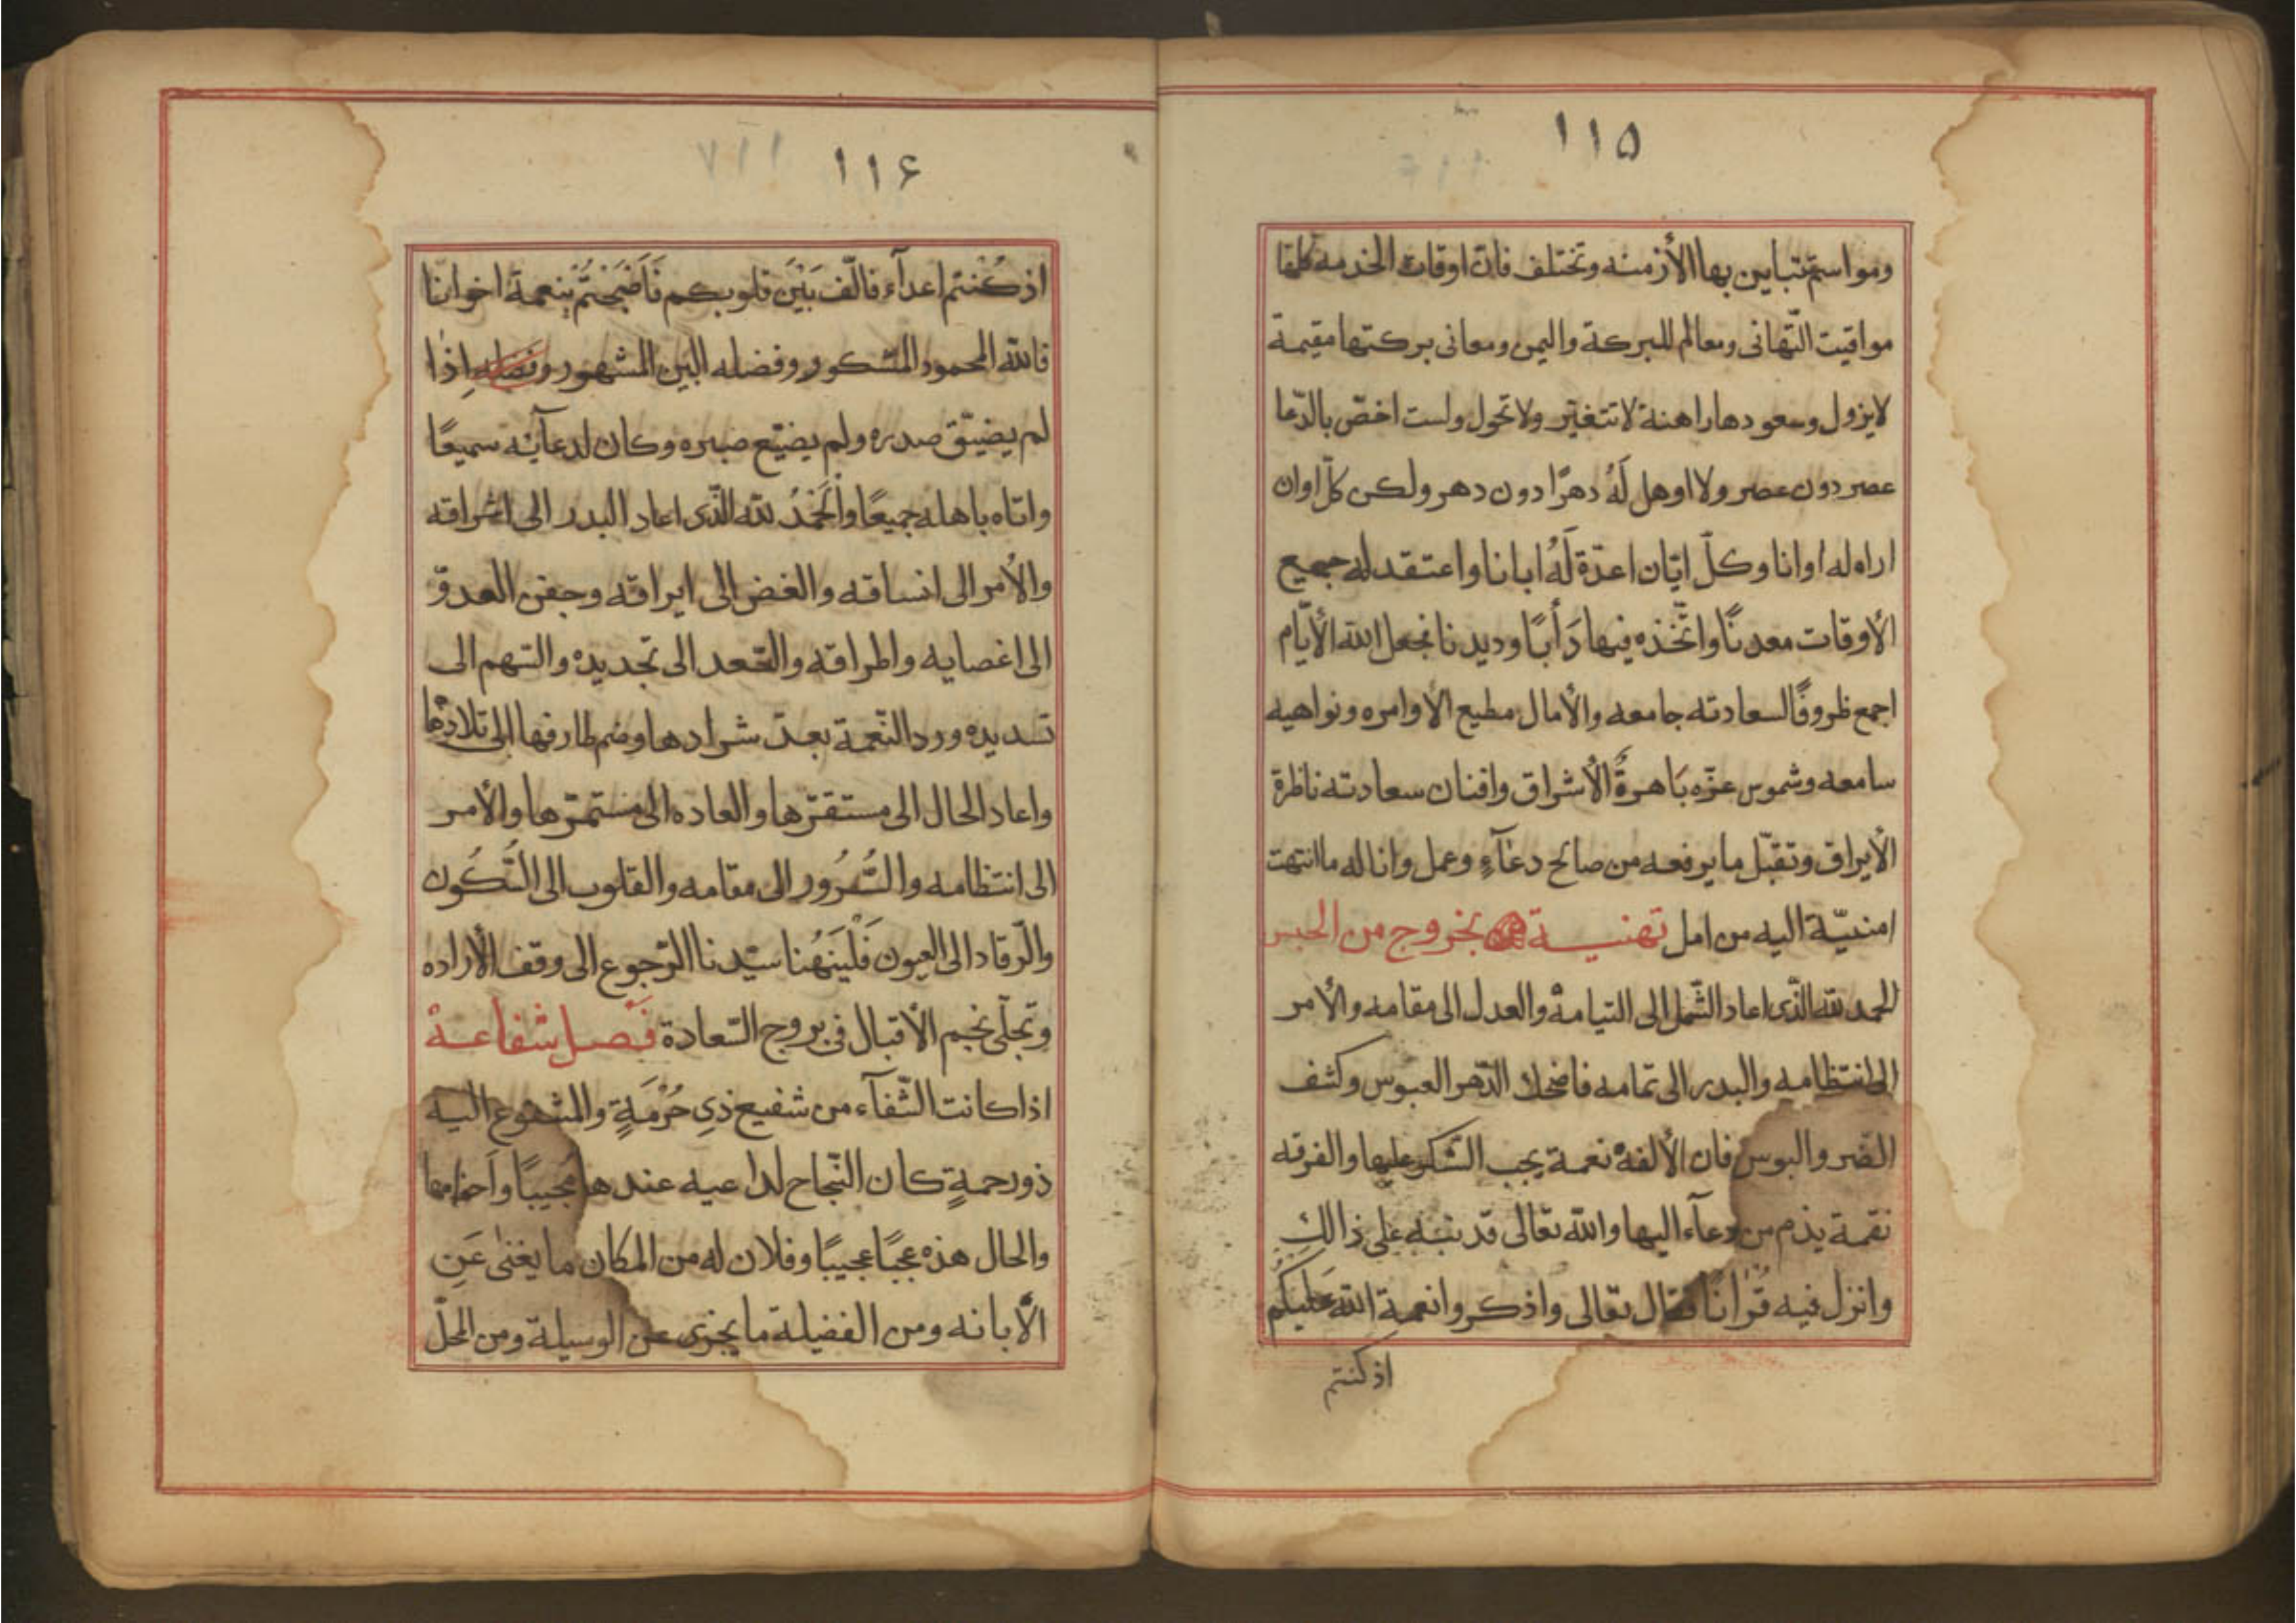 ١١۵
ومواسم تتباين بها الأزمنه وتختلف فان اوقات الخدمه كلها
مواقيت التّهانى ومعالم للبركة واليمن ومعانى بركتها مقيمة
لايزول وسعودها راهنة لا تتغيّر ولا تحول ولست اخصّ بالدّعا
عصر دون عصر ولا اوهل لَهُ دهرًا دون دهر ولكن كلّ اوان
اراه له اوانا وكلّ ايّان اعدّة لَهُ ابانا واعتقد له جميع
الأوقات معدنًا واتّخذه فيها دَأبًا وديدنا فجعل الله الأيّام
اجمع ظروفًا لسعادته جامعه والأمال مطيع الاوامره ونواهيه
سامعه وشموس عزّه بَاهرةُ الأشراق وافنان سعادته ناظرة
الأيراق وتقبّل ما يرفعه من صالح دعآءٍ وعمل واناله ما انتهت
امنيّة اليه من امل تهنيـة بخروج من الحبس
الحمد لله الذّى اعاد الشّمل الى التيامهْ والعدل الى مقامه والأمر
الى انتظامه والبدر الى تمامه فاضحك الدّهر العبوس وكشف
الضّر والبوس فان الألفهْ نعمة يجب الشّكر عليها والفرقه
نقمة يذم من دعآء اليها والله تعالى قد نبّه على ذالكِ
وانزل فيه قُراٰنًا فقال تعالى واذكروا نعمة الله عَلَيكُم
اذ كنتم
١١۶
اذ كُنْتم اعدآء فالّف بَيْنَ قلوبكم فَأَصْبَحْتُمْ بِنعمة اخوانا
فالله المحمود المشكور وفضله البين المشهور وفضله اِذٰا
لم يضيّق صدره ولم يضيّع صبره وكان لدعآئه سميعًا
واتاه باهله جميعًا وَالْحَمْدُ لله الذّى اعاد البدر الى اشراقه
والأمر الى انساقه والغض الى ايراقه وجفن العدوّ
الى اغصايه واطراقه والعّعد الى تجديده والسّهم الى
تسديده ورد النّعمة بعد شرادها وضم طارفها الى تلادها
واعاد الحال الى مستقرّها والعاده الى مستمرّها والأمر
الى انتظامه والسُّرُور الى مقامه والقلوب الى السُّكُون
والرّقاد الى العيون فَلْيَهُنا سيّدنا الرّجوع الى وقف الأراده
وتجلّى نجم الأقبال فى بروج السّعادة فَصـل شفاعـة
اذا كانت الشّفآء من شفيع ذي حُرْمَةٍ والمشفوع اليه
ذو رحمةٍ كان النّجاح لداعيه عندها مُجيبًا وَ
والحال هذه عجبًا عجيبًا وفلان له من المكان ما يغنىٰ عَنِ
الأبانه ومن الفضيلة ما يجزى عن الوسيلة ومن المحلّ